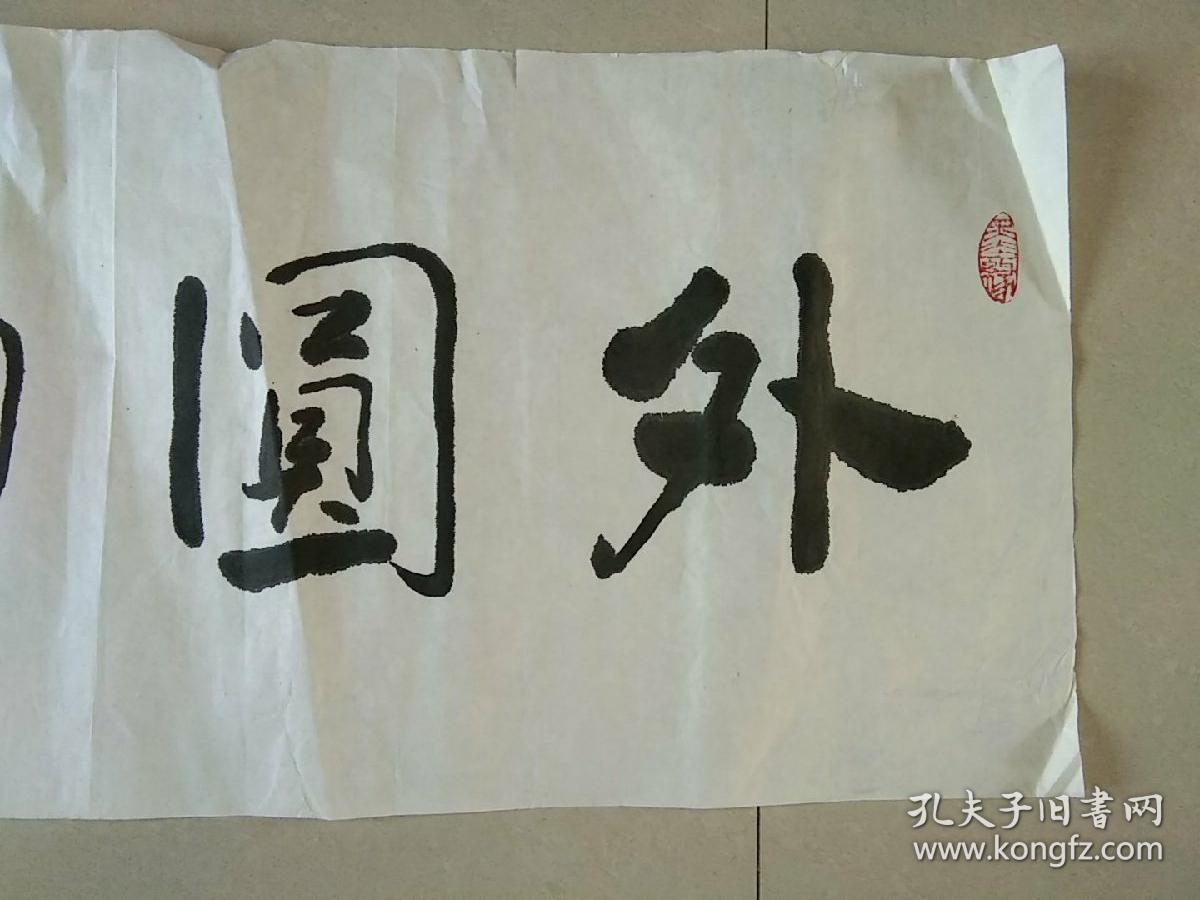 外圓
孔夫子旧書网
www.kongfz.com